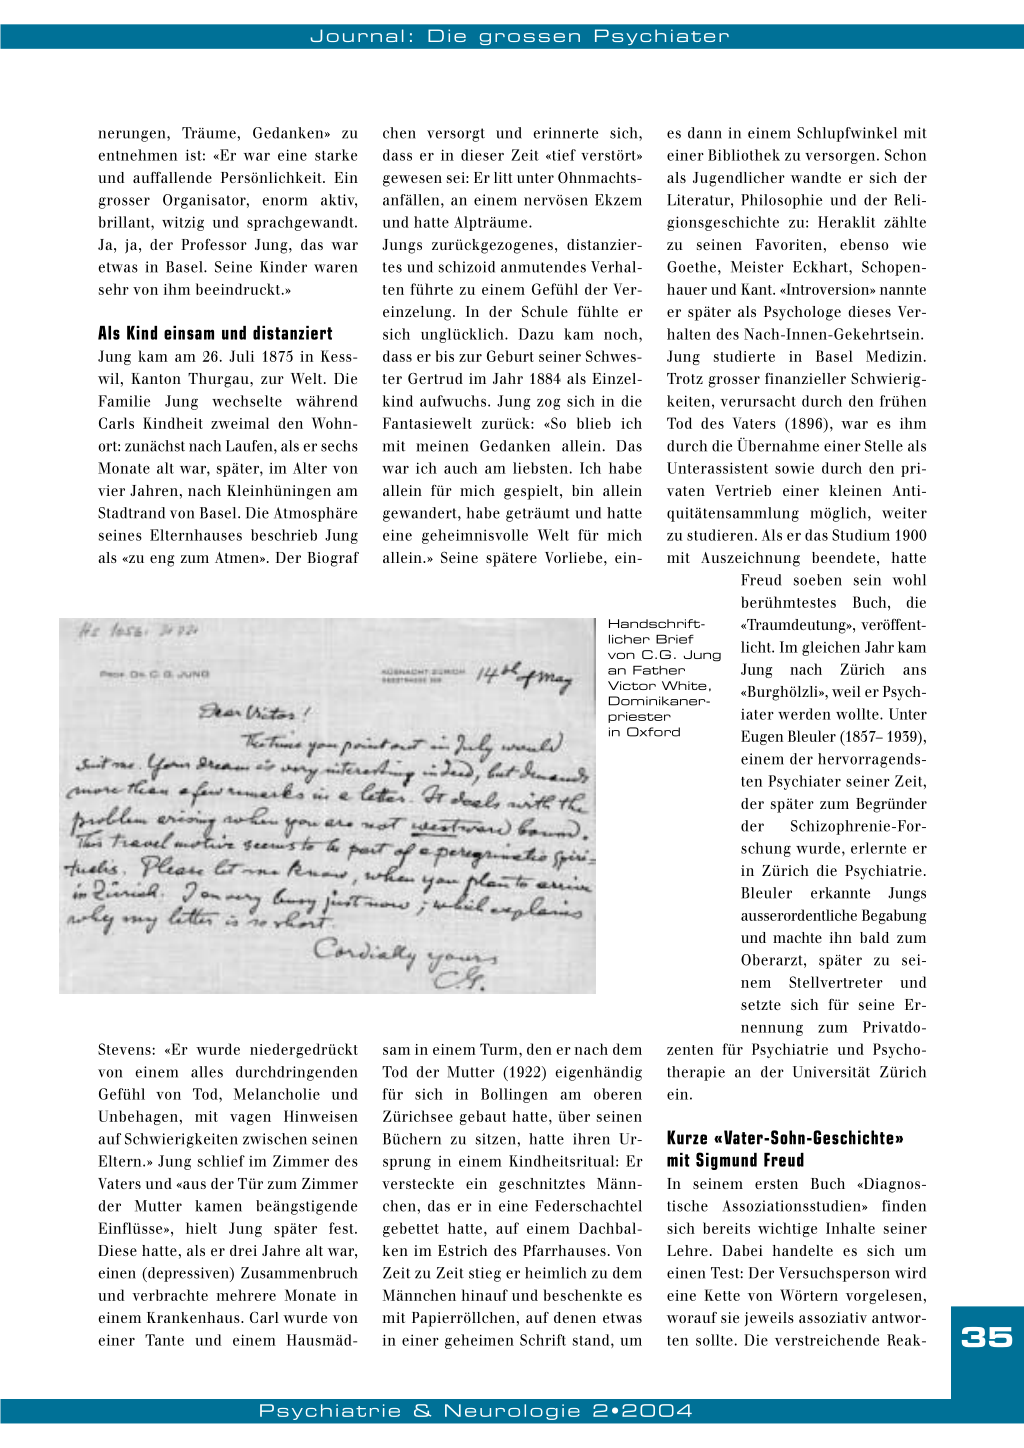 Journal: Die grossen Psychiater
nerungen, Träume, Gedanken» zu
entnehmen ist: «Er war eine starke
und auffallende Persönlichkeit. Ein
grosser Organisator, enorm aktiv,
brillant, witzig und sprachgewandt.
Ja, ja, der Professor Jung, das war
etwas in Basel. Seine Kinder waren
sehr von ihm beeindruckt.»
Als Kind einsam und distanziert
Jung kam am 26. Juli 1875 in Kess-
wil, Kanton Thurgau, zur Welt. Die
Familie Jung wechselte während
Carls Kindheit zweimal den Wohn-
ort: zunächst nach Laufen, als er sechs
Monate alt war, später, im Alter von
vier Jahren, nach Kleinhüningen am
Stadtrand von Basel. Die Atmosphäre
seines Elternhauses beschrieb Jung
als «zu eng zum Atmen». Der Biograf
Stevens: «Er wurde niedergedrückt
von einem alles durchdringenden
Gefühl von Tod, Melancholie und
Unbehagen, mit vagen Hinweisen
auf Schwierigkeiten zwischen seinen
Eltern.» Jung schlief im Zimmer des
Vaters und «aus der Tür zum Zimmer
der Mutter kamen beängstigende
Einflüsse», hielt Jung später fest.
Diese hatte, als er drei Jahre alt war,
einen (depressiven) Zusammenbruch
und verbrachte mehrere Monate in
einem Krankenhaus. Carl wurde von
einer Tante und einem Hausmäd-
chen versorgt und erinnerte sich,
dass er in dieser Zeit «tief verstört»
gewesen sei: Er litt unter Ohnmachts-
anfällen, an einem nervösen Ekzem
und hatte Alpträume.
Jungs zurückgezogenes, distanzier-
tes und schizoid anmutendes Verhal-
ten führte zu einem Gefühl der Ver-
einzelung. In der Schule fühlte er
sich unglücklich. Dazu kam noch,
dass er bis zur Geburt seiner Schwes-
ter Gertrud im Jahr 1884 als Einzel-
kind aufwuchs. Jung zog sich in die
Fantasiewelt zurück: «So blieb ich
mit meinen Gedanken allein. Das
war ich auch am liebsten. Ich habe
allein für mich gespielt, bin allein
gewandert, habe geträumt und hatte
eine geheimnisvolle Welt für mich
allein.» Seine spätere Vorliebe, ein-
sam in einem Turm, den er nach dem
Tod der Mutter (1922) eigenhändig
für sich in Bollingen am oberen
Zürichsee gebaut hatte, über seinen
Büchern zu sitzen, hatte ihren Ur-
sprung in einem Kindheitsritual: Er
versteckte ein geschnitztes Männ-
chen, das er in eine Federschachtel
gebettet hatte, auf einem Dachbal-
ken im Estrich des Pfarrhauses. Von
Zeit zu Zeit stieg er heimlich zu dem
Männchen hinauf und beschenkte es
mit Papierröllchen, auf denen etwas
in einer geheimen Schrift stand, um
es dann in einem Schlupfwinkel mit
einer Bibliothek zu versorgen. Schon
als Jugendlicher wandte er sich der
Literatur, Philosophie und der Reli-
gionsgeschichte zu: Heraklit zählte
zu seinen Favoriten, ebenso wie
Goethe, Meister Eckhart, Schopen-
hauer und Kant. «Introversion» nannte
er später als Psychologe dieses Ver-
halten des Nach-Innen-Gekehrtsein.
Jung studierte in Basel Medizin.
Trotz grosser finanzieller Schwierig-
keiten, verursacht durch den frühen
Tod des Vaters (1896), war es ihm
durch die Übernahme einer Stelle als
Unterassistent sowie durch den pri-
vaten Vertrieb einer kleinen Anti-
quitätensammlung möglich, weiter
zu studieren. Als er das Studium 1900
mit Auszeichnung beendete, hatte
Freud soeben sein wohl
berühmtestes Buch, die
«Traumdeutung», veröffent-
licht. Im gleichen Jahr kam
Jung nach Zürich ans
«Burghölzli», weil er Psych-
iater werden wollte. Unter
Eugen Bleuler (1857– 1939),
einem der hervorragends-
ten Psychiater seiner Zeit,
der später zum Begründer
der Schizophrenie-For-
schung wurde, erlernte er
in Zürich die Psychiatrie.
Bleuler erkannte Jungs
ausserordentliche Begabung
und machte ihn bald zum
Oberarzt, später zu sei-
nem Stellvertreter und
setzte sich für seine Er-
nennung zum Privatdo-
zenten für Psychiatrie und Psycho-
therapie an der Universität Zürich
ein.
Kurze «Vater-Sohn-Geschichte»
mit Sigmund Freud
In seinem ersten Buch «Diagnos-
tische Assoziationsstudien» finden
sich bereits wichtige Inhalte seiner
Lehre. Dabei handelte es sich um
einen Test: Der Versuchsperson wird
eine Kette von Wörtern vorgelesen,
worauf sie jeweils assoziativ antwor-
ten sollte. Die verstreichende Reak-
Hs 1056:
PROF. DR. C. G. JUNG
KÜSNACHT-ZÜRICH
SEESTRASSE
14th of May
Dear Victor!
The time you point out in July would
suit me. Your dream is very interesting indeed, but demands
more than a few remarks in a letter. It deals with the
problem arising when you are not westward bound.
This travel motive seems to be part of a peregrinatio spiri-
tualis. Please let me know, when you plan to arrive
in Zürich. I am very busy just now; which explains
why my letter is so short.
Cordially yours
C.G.
Handschrift-
licher Brief
von C.G. Jung
an Father
Victor White,
Dominikaner-
priester
in Oxford
35
Psychiatrie & Neurologie 2•2004